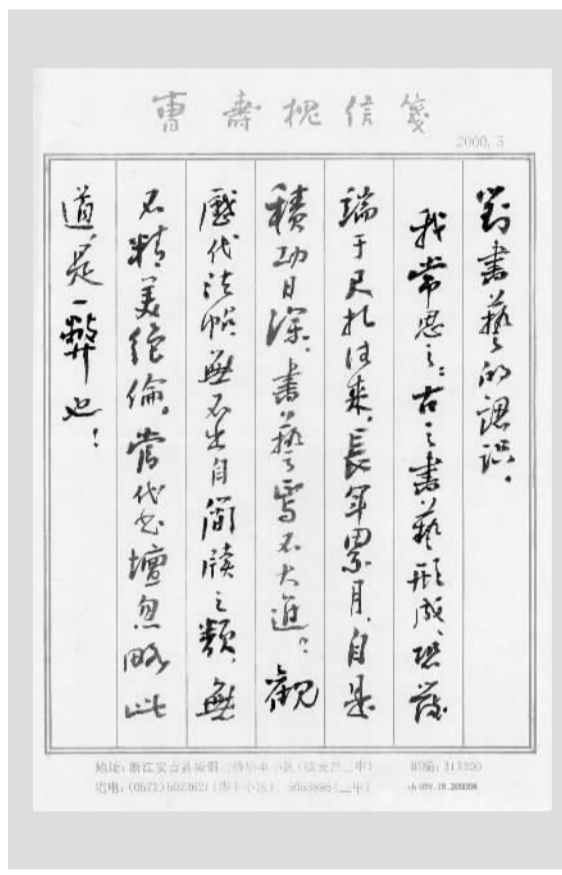 曹壽槐信箋
2000.5
對書藝的認識。
我常思之：古之書藝形成、恐發
端于尺札往来，長年累月，自是
積功日深，書藝焉不大進？觀
歷代法帖，無不出自簡牘之類，無
不精美絕倫。當代書壇忽略此
道，是一弊也！
地址：浙江安吉县
邮编：313300
宅电：(0572)5023621